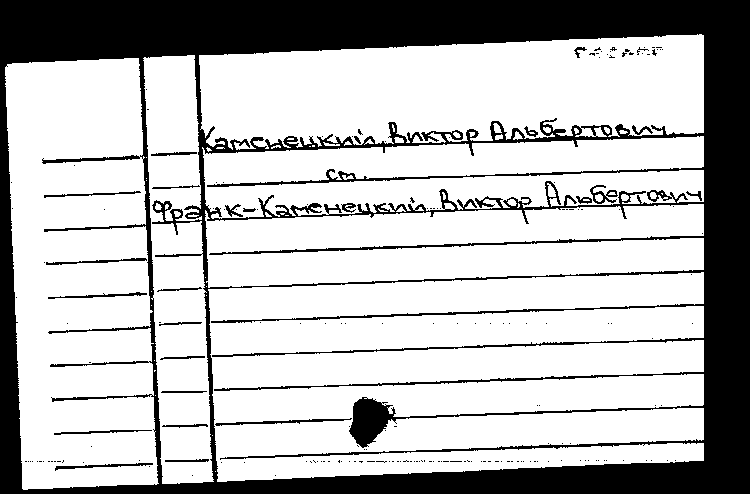 Каменецкий, Виктор Альбертович
см.
Франк-Каменецкий, Виктор Альбертович